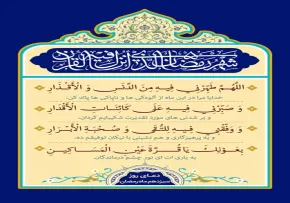 شهر رمضان الذی انزل فیه القرآن
اللهم طهرنی فیه من الدنس و الأقذار
خدایا مرا در این ماه از آلودگی ها و ناپاکی ها پاک کن
و صبرنی فیه علی کائنات الأقدار
و بر شدنی های مورد تقدیرت شکیبایم گردان،
و وفقنی فیه للتقی و صحبة الأبرار
و به پرهیزگاری و هم نشینی با نیکان توفیقم ده،
بعونک یا قرة عین المساکین
به یاری ات ای نور چشم درماندگان.
دعای روز
سیزدهم ماه رمضان